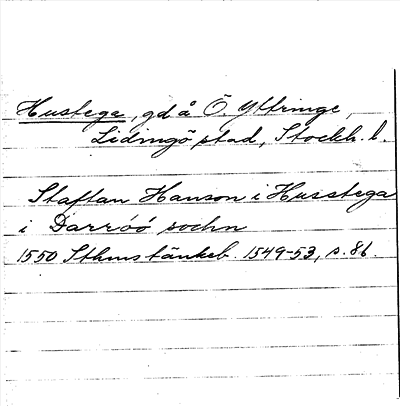 Hustega, gd å Ö. Yttringe,
Lidingö stad, Stockh. l.
Staffan Hanson i Husstega
i Darróó sochn
1550 Sthms tänkeb. 1549-53, s. 86.